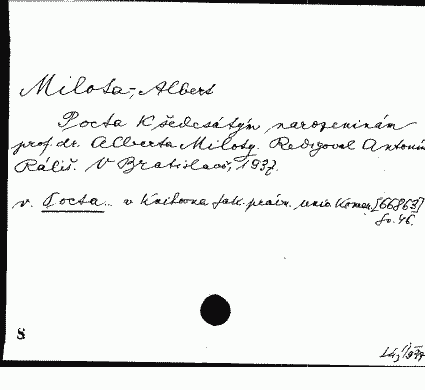 Milota, Albert
Pocta k šedesátým narozeninám
prof. dr. Alberta Miloty. Redigoval Antonín
Ráliš. V Bratislavě, 1937.
v. Pocta... v Knihovna fak. práv. univ. Komen. [66863]
sv. 46.
S